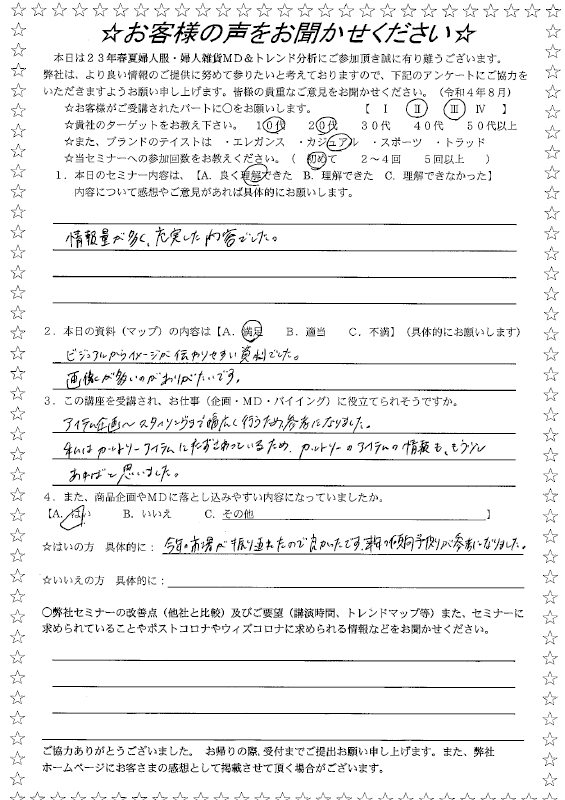 ☆お客様の声をお聞かせください☆
本日は23年春夏婦人服・婦人雑貨MD＆トレンド分析にご参加頂き誠に有り難うございます。
弊社は、より良い情報のご提供に努めて参りたいと考えておりますので、下記のアンケートにご協力を
いただきますようお願い申し上げます。皆様の貴重なご意見をお聞かせください。(令和4年8月)
☆お客様がご受講されたパートに○をお願いします。 【 Ⅰ Ⅱ Ⅲ Ⅳ 】
☆貴社のターゲットをお教え下さい。 10代 20代 30代 40代 50代以上
☆また、ブランドのテイストは ・エレガンス ・カジュアル ・スポーツ ・トラッド
☆当セミナーへの参加回数をお教えください。( 初めて 2～4回 5回以上 )
1．本日のセミナー内容は、【A. 良く理解できた B. 理解できた C. 理解できなかった】
内容について感想やご意見があれば具体的にお願いします。
情報量が多く、充実した内容でした。
2．本日の資料（マップ）の内容は【A. 満足 B. 適当 C. 不満】(具体的にお願いします)
ビジュアルからイメージが伝わりやすい資料でした。
画像が多いのがありがたいです。
3．この講座を受講され、お仕事（企画・MD・バイイング）に役立てられそうですか。
アイテム企画～スタイリングまで幅広く行うため参考になりました。
私はカットソーアイテムにたずさわっているため、カットソーのアイテムの情報も、もう少し
あればと思いました。
4．また、商品企画やMDに落とし込みやすい内容になっていましたか。
【A. はい B. いいえ C. その他 】
☆はいの方 具体的に： 今年の市場が振り返れたので良かったです。来年の傾向予測が参考になりました。
☆いいえの方 具体的に：
○弊社セミナーの改善点（他社と比較）及びご要望（講演時間、トレンドマップ等）また、セミナーに
求められていることやポストコロナやウィズコロナに求められる情報などをお聞かせください。
ご協力ありがとうございました。 お帰りの際、受付までご提出お願い申し上げます。また、弊社
ホームページにお客さまの感想として掲載させて頂く場合がございます。